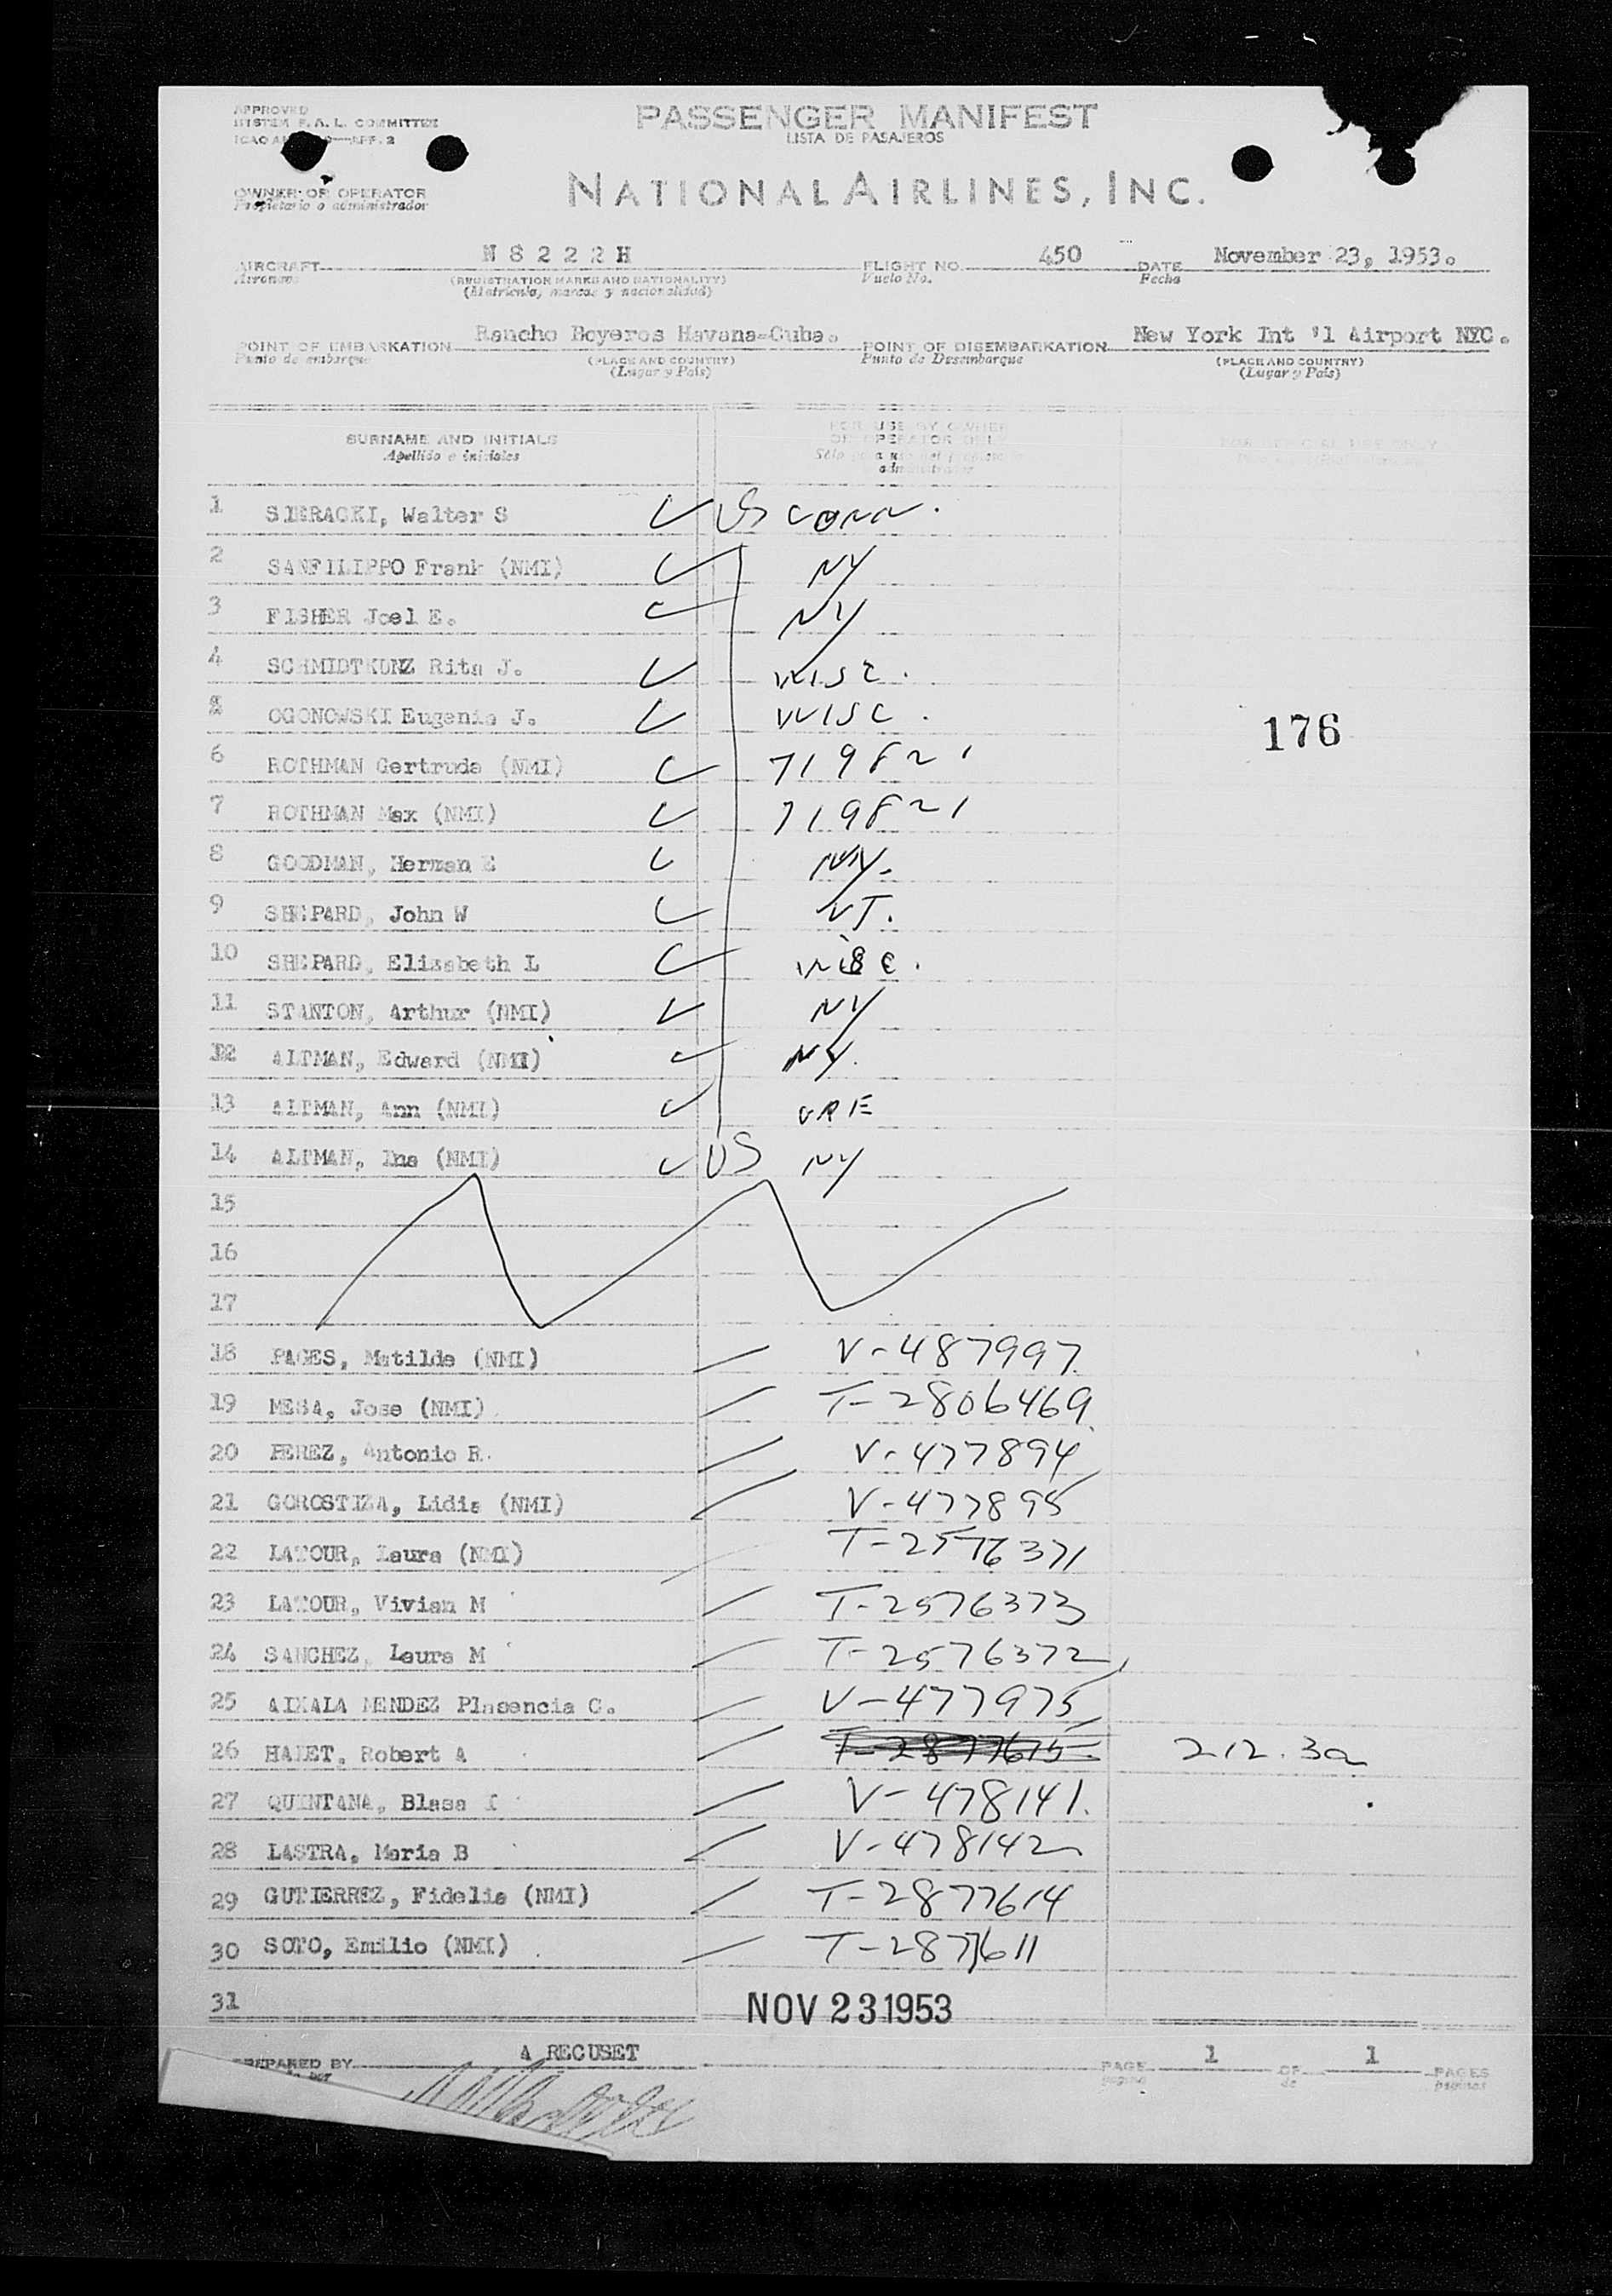 APPROVED
SYSTEM F. A. L. COMMITTEE
PASSENGER MANIFEST
LISTA DE PASAJEROS
OWNER OR OPERATOR
Propietario o administrador
NATIONAL AIRLINES, INC.
AIRCRAFT N 8 2 2 2 H FLIGHT NO. 450 DATE November 23, 1953.
Aeronave (REGISTRATION MARKS AND NATIONALITY) Vuelo No. Fecha
(Matricula, marcas y nacionalidad)
POINT OF EMBARKATION Rancho Boyeros Havana-Cuba. POINT OF DISEMBARKATION New York Int 'l Airport NYC.
Punto de embarque (PLACE AND COUNTRY) Punto de Desembarque (PLACE AND COUNTRY)
(Lugar y País) (Lugar y País)
SURNAME AND INITIALS FOR USE BY OWNER OR OPERATOR ONLY
Apellido e iniciales
1 SIERACKI, Walter S US CONN.
2 SANFILIPPO Frank (NMI) NY
3 FISHER Joel E. NY
4 SCHMIDTKUNZ Rita J. WISC.
OGONOWSKI Eugenia J. WISC.
176
6 ROTHMAN Gertrude (NMI) 719821
7 ROTHMAN Max (NMI) 719821
8 GOODMAN, Herman E NY.
9 SHEPARD, John W VT.
10 SHEPARD, Elizabeth L WISC.
11 STANTON, Arthur (NMI) NY
12 ALTMAN, Edward (NMI) NY.
13 ALTMAN, Ann (NMI)
14 ALTMAN, Ina (NMI) US NY
15
16
17
18 PAGES, Matilde (NMI) V-487997
19 MESA, Jose (NMI) T-2806469
20 PEREZ, Antonio R. V-477894
21 GOROSTIZA, Lidia (NMI) V-477895
22 LATOUR, Laura (NMI) T-2576371
23 LATOUR, Vivian M T-2576373
24 SANCHEZ, Laura M T-2576372
25 AIXALA MENDEZ Plasencia C. V-477975
26 HAIET, Robert A T-2877615 212.3a
27 QUINTANA, Blasa I V-478141.
28 LASTRA, Maria B V-478142
29 GUTIERREZ, Fidelia (NMI) T-2877614
30 SOTO, Emilio (NMI) T-2877611
31 NOV 23 1953
PREPARED BY A RECUSET PAGE 1 OF 1 PAGES
de